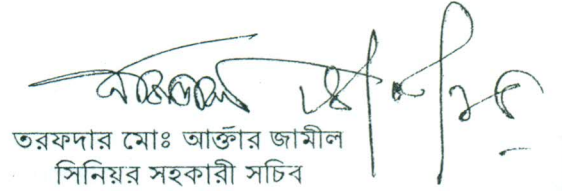 তরফদার মোঃ আক্তার জামীল
সিনিয়র সহকারী সচিব